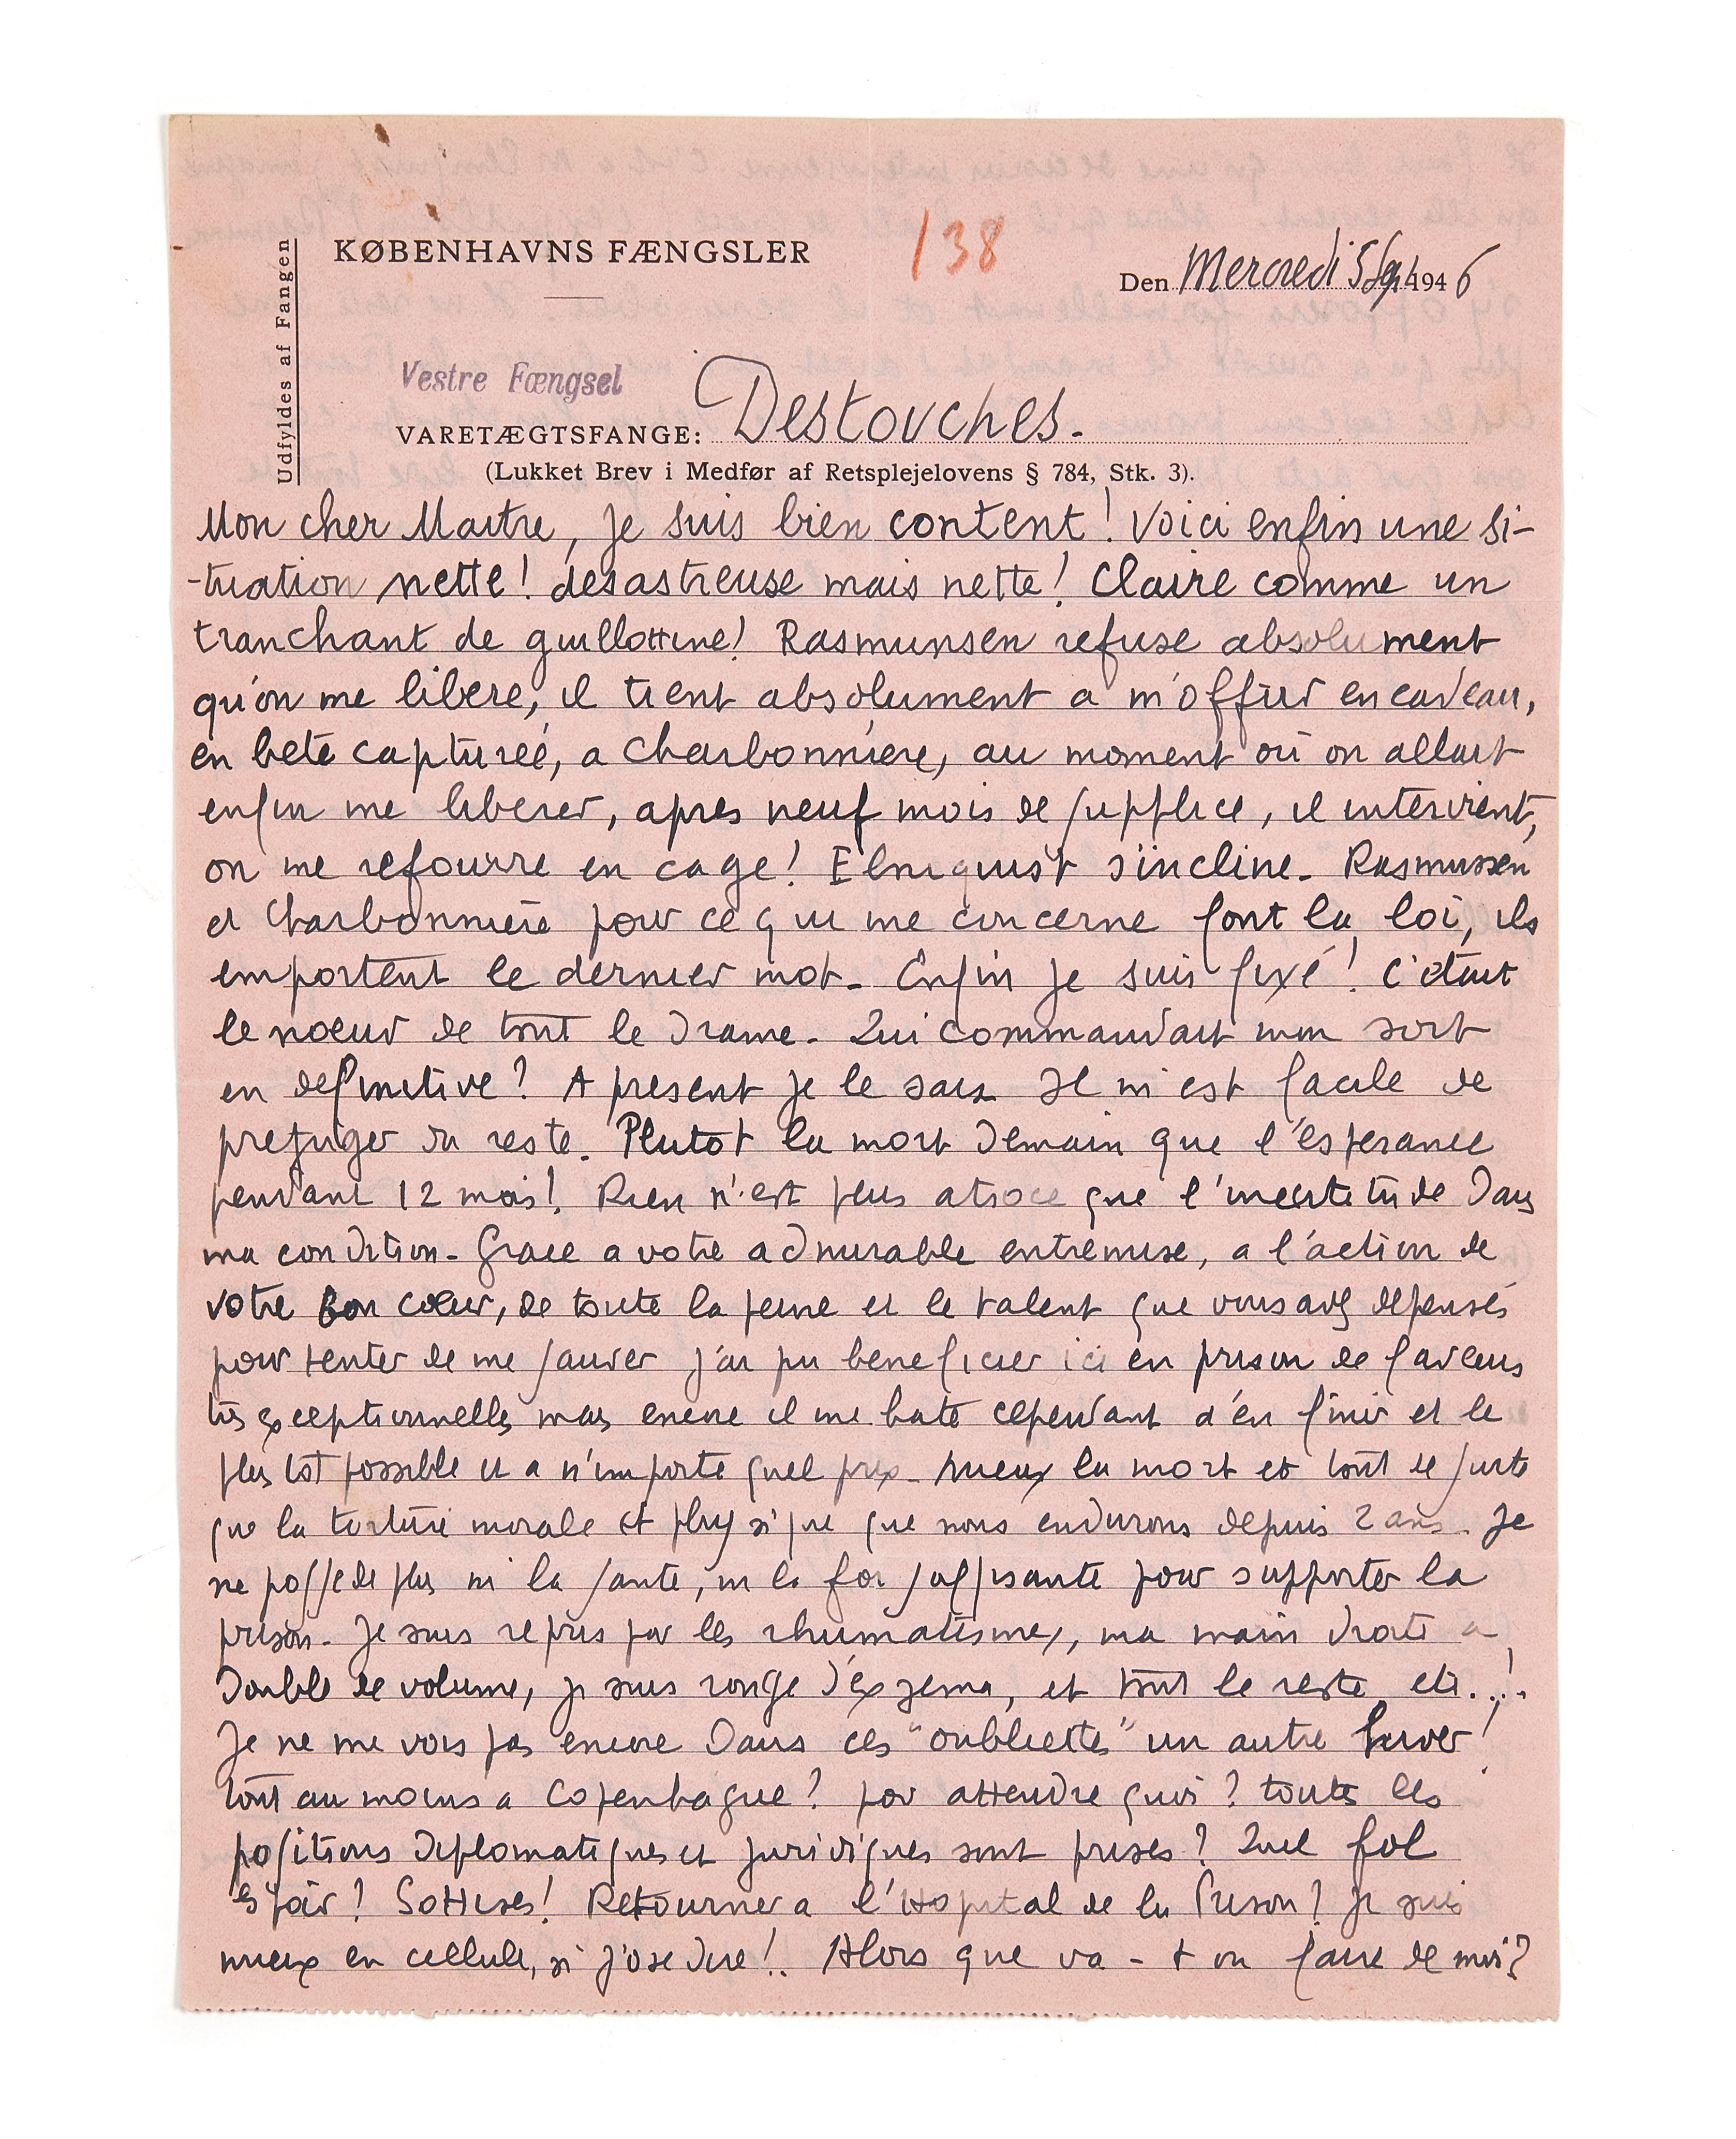 KØBENHAVNS FÆNGSLER
138
Den Mercredi 5 Sept 1946
Udfyldes af Fangen
Vestre Fængsel
VARETÆGTSFANGE: Destouches.
(Lukket Brev i Medfør af Retsplejelovens § 784, Stk. 3).
Mon cher Maitre, je suis bien content! Voici enfin une si-
-tuation nette! desastreuse mais nette! Claire comme un
tranchant de guillottine! Rasmunsen refuse absolument
qu'on me libere, il tient absolument a m'offrir en cadeau,
en bete capturée, a Charbonniere, au moment où on allait
enfin me liberer, apres neuf mois de supplice, il intervient,
on me refourre en cage! Elmquist s'incline. Rasmussen
et Charbonniere pour ce qui me concerne font la loi, ils
emportent le dernier mot. Enfin je suis fixé! C'etait
le noeud de tout le drame. Qui commandait mon sort
en definitive? A present je le sais Il m'est facile de
prejuger du reste. Plutot la mort demain que l'esperance
pendant 12 mois! Rien n'est plus atroce que l'incertitude dans
ma condition. Grace a votre admirable entremise, a l'action de
votre bon coeur, de toute la peine et le talent que vous avez depensés
pour tenter de me sauver j'ai pu beneficier ici en prison de faveurs
très exceptionnelles mais encore il me hate cependant d'en finir et le
plus tot possible et a n'importe quel prix. Mieux la mort et tout de suite
que la torture morale et physique que nous endurons depuis 2 ans. Je
ne possede plus ni la sante, ni la foi suffisante pour supporter la
prison. Je suis repris par les rhumatismes, ma main droite a
doublé de volume, je suis rongé d'exzema, et tout le reste etc...!
Je ne me vois pas encore dans ces "oubliettes" un autre hiver!
tout au moins a Copenhague? pour attendre quoi? toutes les
positions diplomatiques et juridiques sont prises? Quel fol
espoir! Sottises! Retourner a l'Hopital de la Prison? je suis
mieux en cellule, si j'ose dire!.. Alors que va-t on faire de moi?